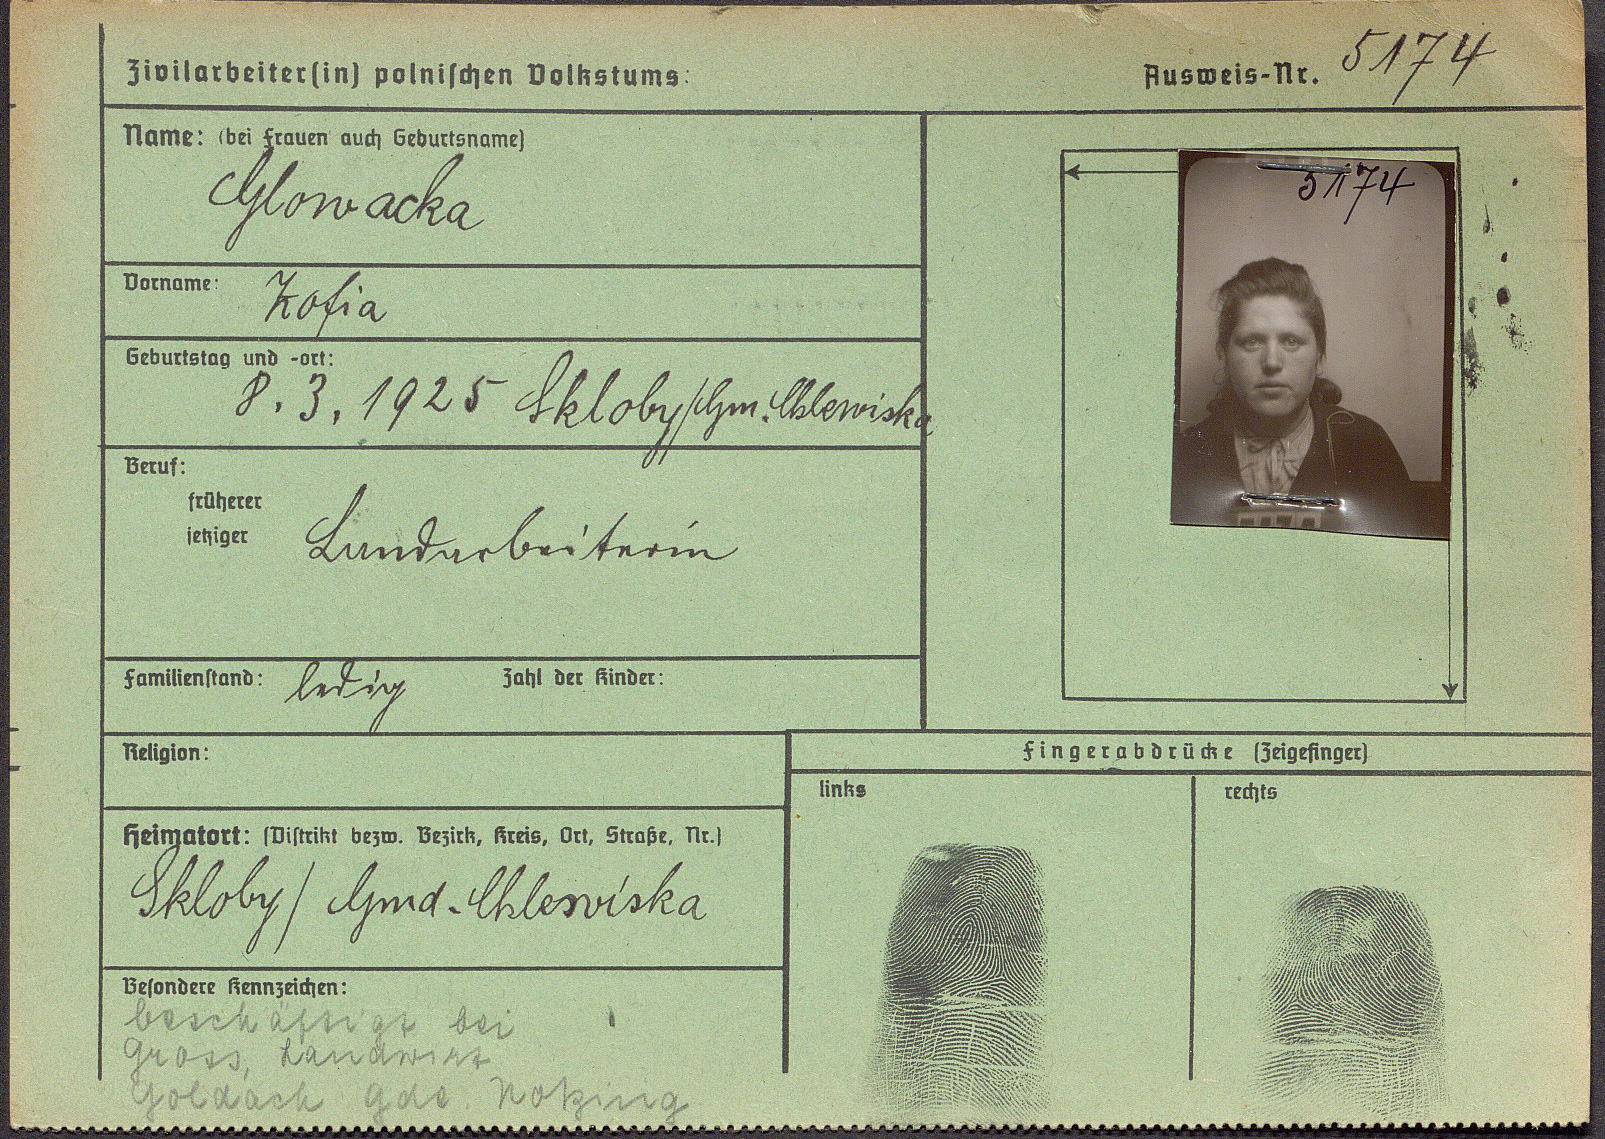 Zivilarbeiter(in) polnischen Volkstums:
Ausweis-Nr. 5174
Name: (bei Frauen auch Geburtsname)
Glowacka
5174
Vorname: Zofia
Geburtstag und -ort:
8.3.1925 Skloby/Gm. Chlewiska
Beruf:
früherer
jetziger Landarbeiterin
Familienstand: ledig Zahl der Kinder:
Religion:
Fingerabdrücke (Zeigefinger)
links
rechts
Heimatort: (Distrikt bezw. Bezirk, Kreis, Ort, Straße, Nr.)
Skloby/ Gmd. Chlewiska
Besondere Kennzeichen:
beschäftigt bei
Gross, Landwirt
Goldach Gde. Notzing